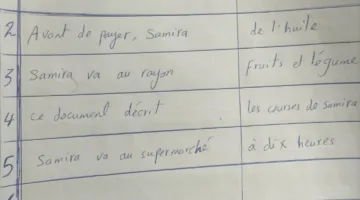 2 Avant de payer, Samira de l'huile
3 Samira va au rayon fruits et légume
4 ce document décrit les courses de samira
5 Samira va au supermarché à dix heures